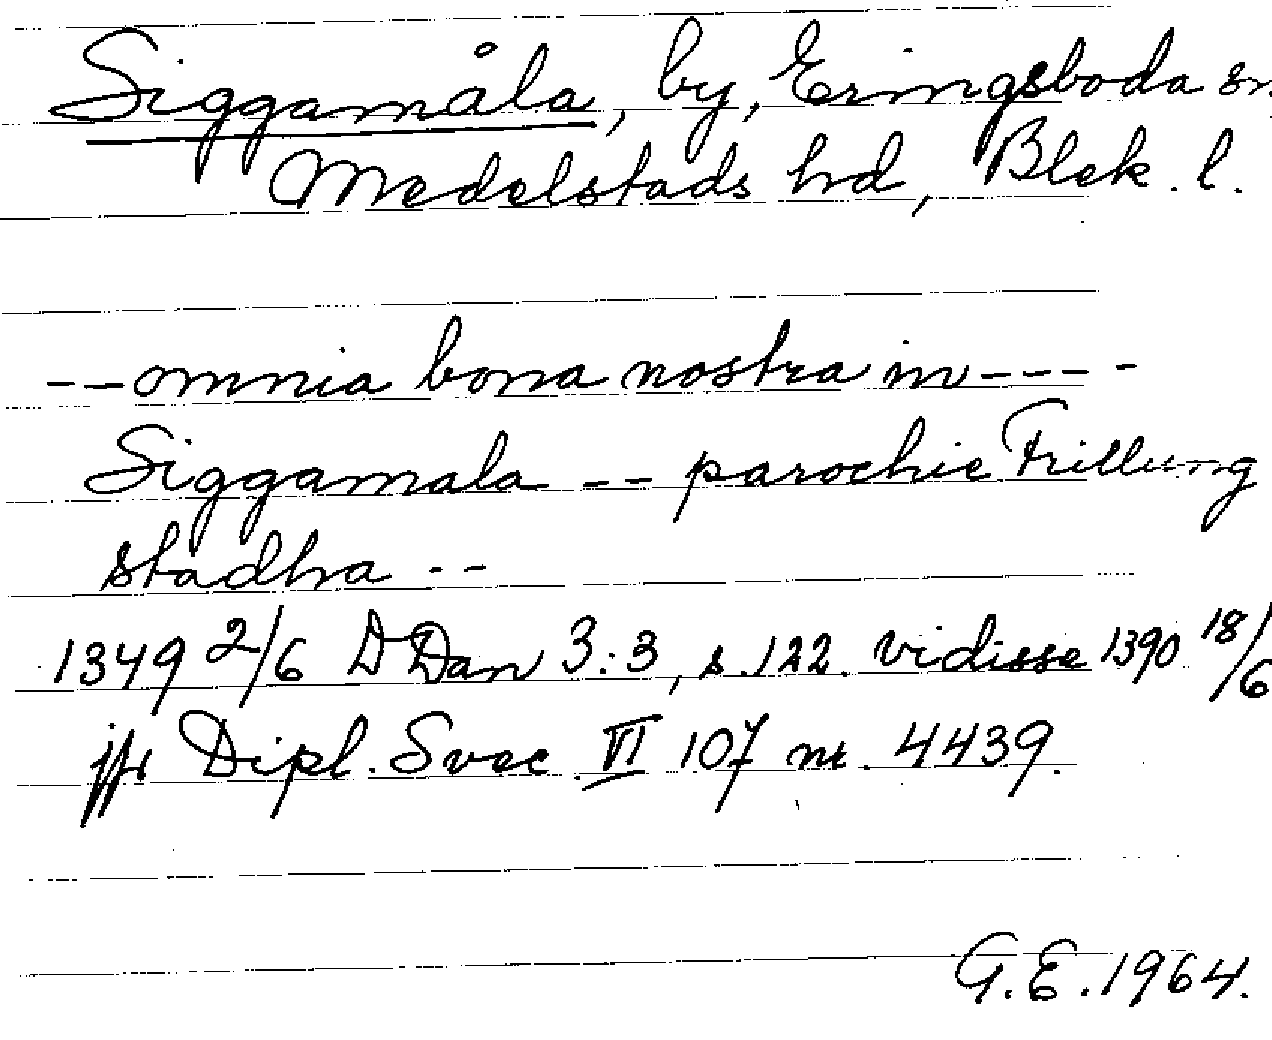 Siggamåla, by, Eringsboda sn
Medelstads hd, Blek. l.
-- omnia bona nostra in ----
Siggamala -- parochie Trillung
stadha --
1349 2/6 D Dan 3:3, s. 122. vidisse 1390 18/6
jfr Dipl. Svec. VI 107 nr. 4439.
G.E. 1964.